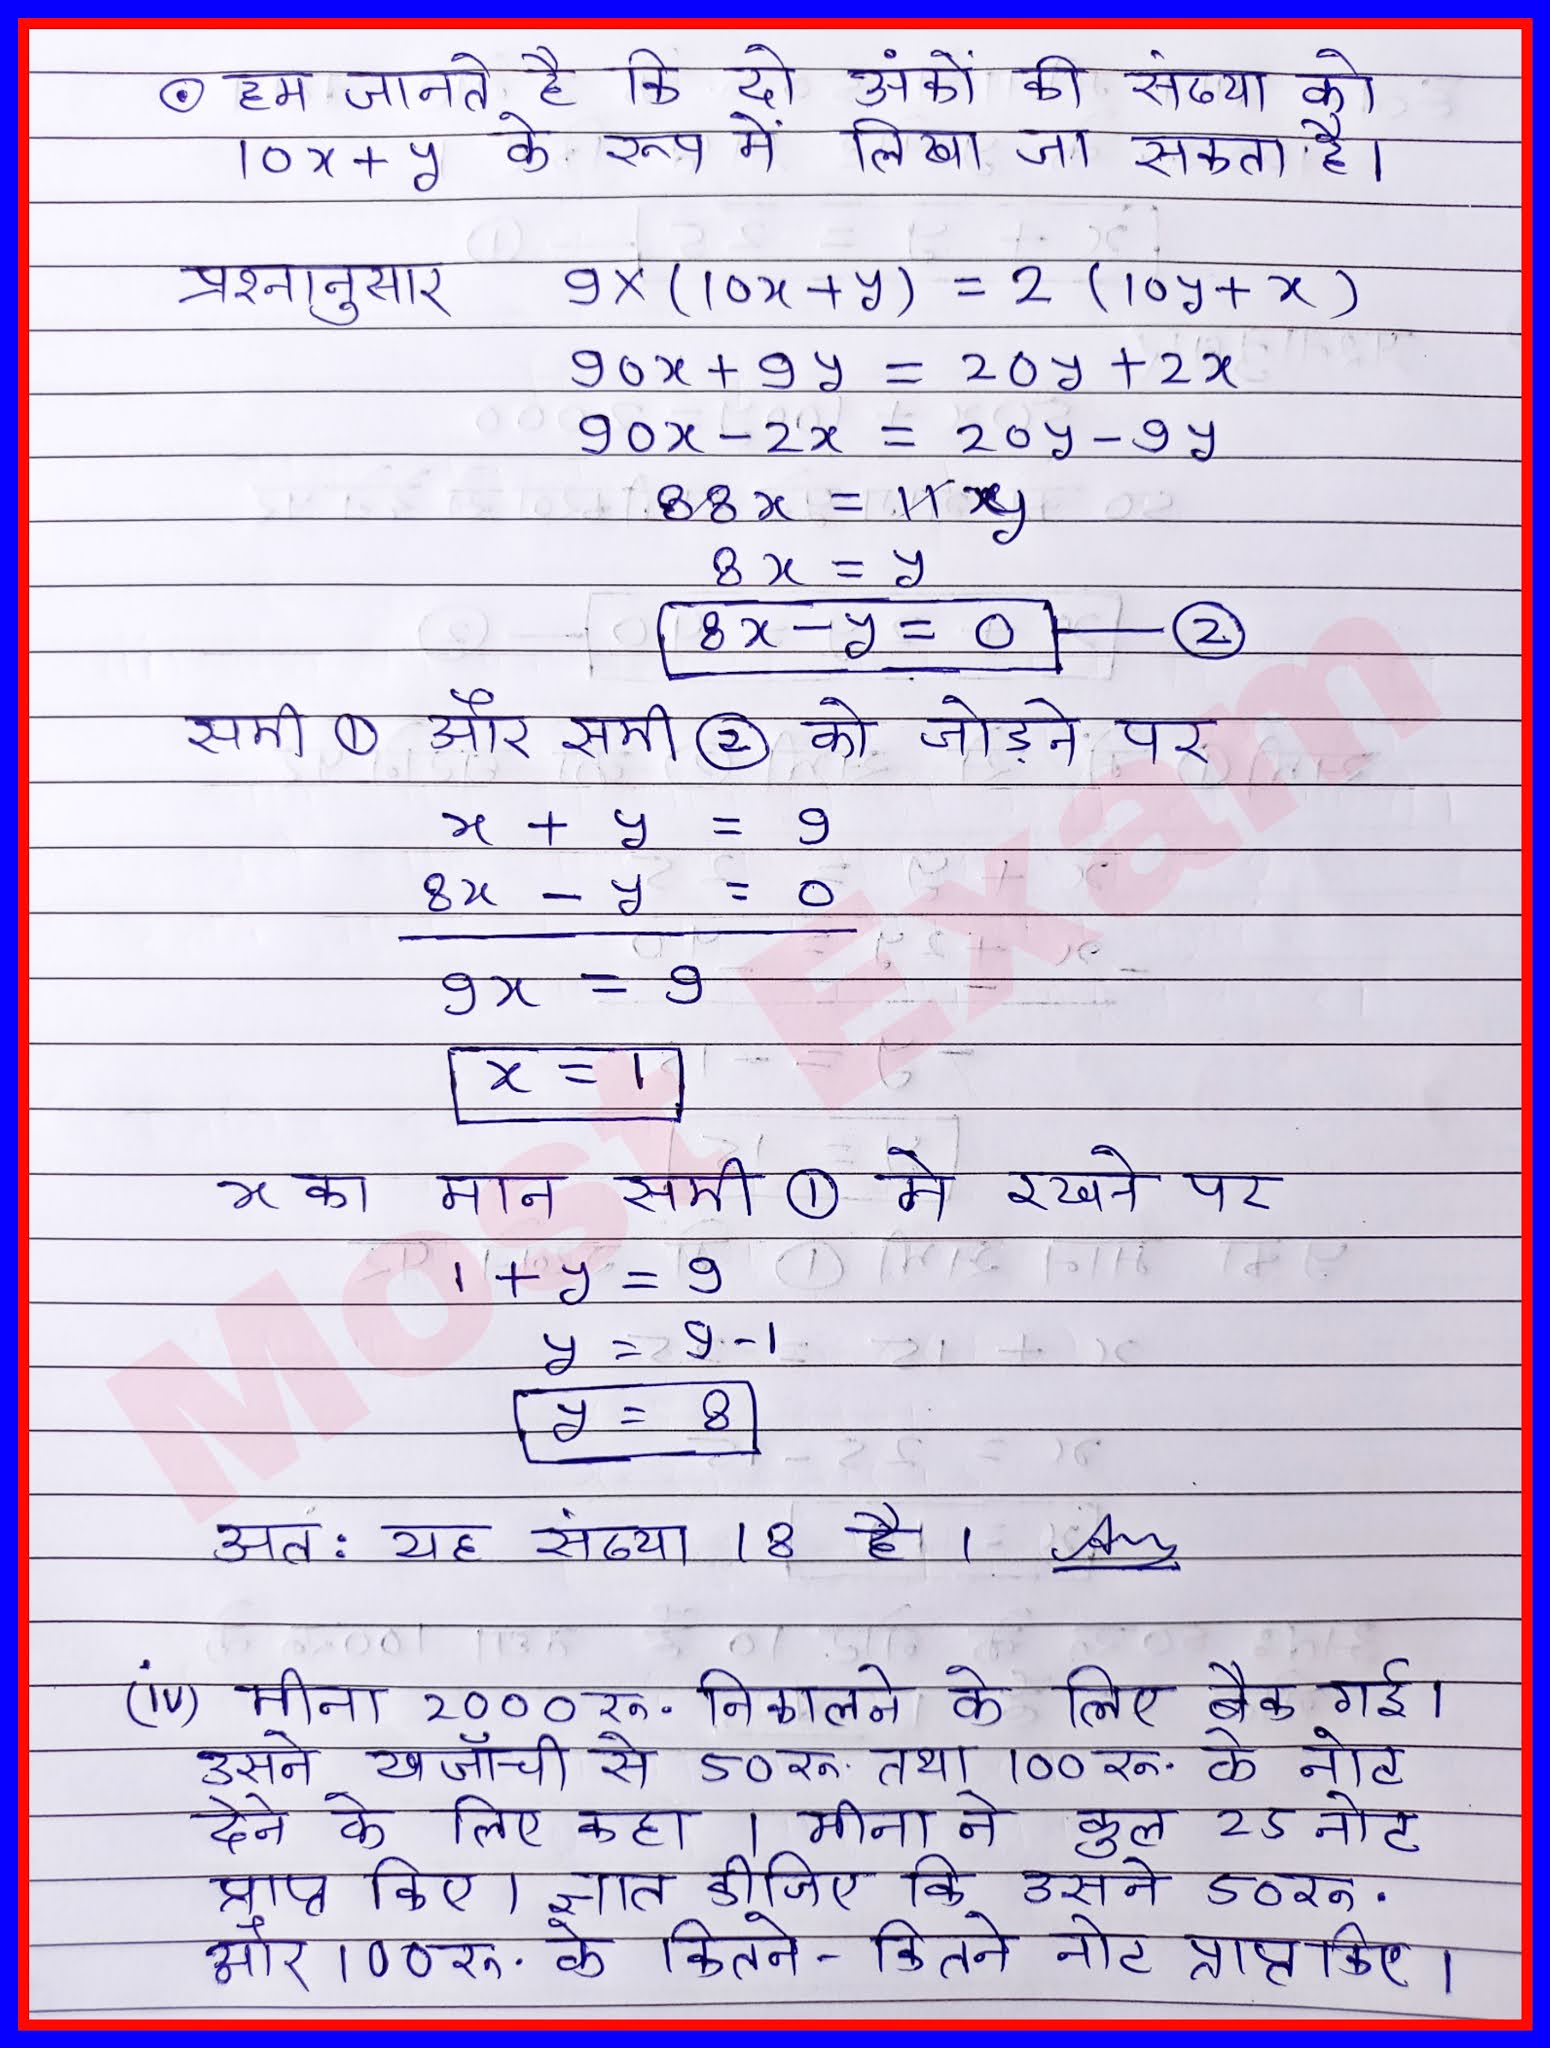 ⊙ हम जानते है कि दो अंकों की संख्या को
10x + y के रूप में लिखा जा सकता है।
प्रश्नानुसार 9×(10x+y) = 2 (10y+x)
90x + 9y = 20y + 2x
90x - 2x = 20y - 9y
88x = 11 y
8x = y
8x - y = 0 — ②
समी ① और समी ② को जोड़ने पर
x + y = 9
8x - y = 0
9x = 9
x = 1
x का मान समी ① मे रखने पर
1 + y = 9
y = 9 - 1
y = 8
अतः यह संख्या 18 है । Ans
(iv) मीना 2000 रू. निकालने के लिए बैंक गई।
उसने खजाँची से 50 रू. तथा 100 रू. के नोट
देने के लिए कहा । मीना ने कुल 25 नोट
प्राप्त किए। ज्ञात कीजिए कि उसने 50 रू.
और 100 रू. के कितने - कितने नोट प्राप्त किए ।
Most Exam